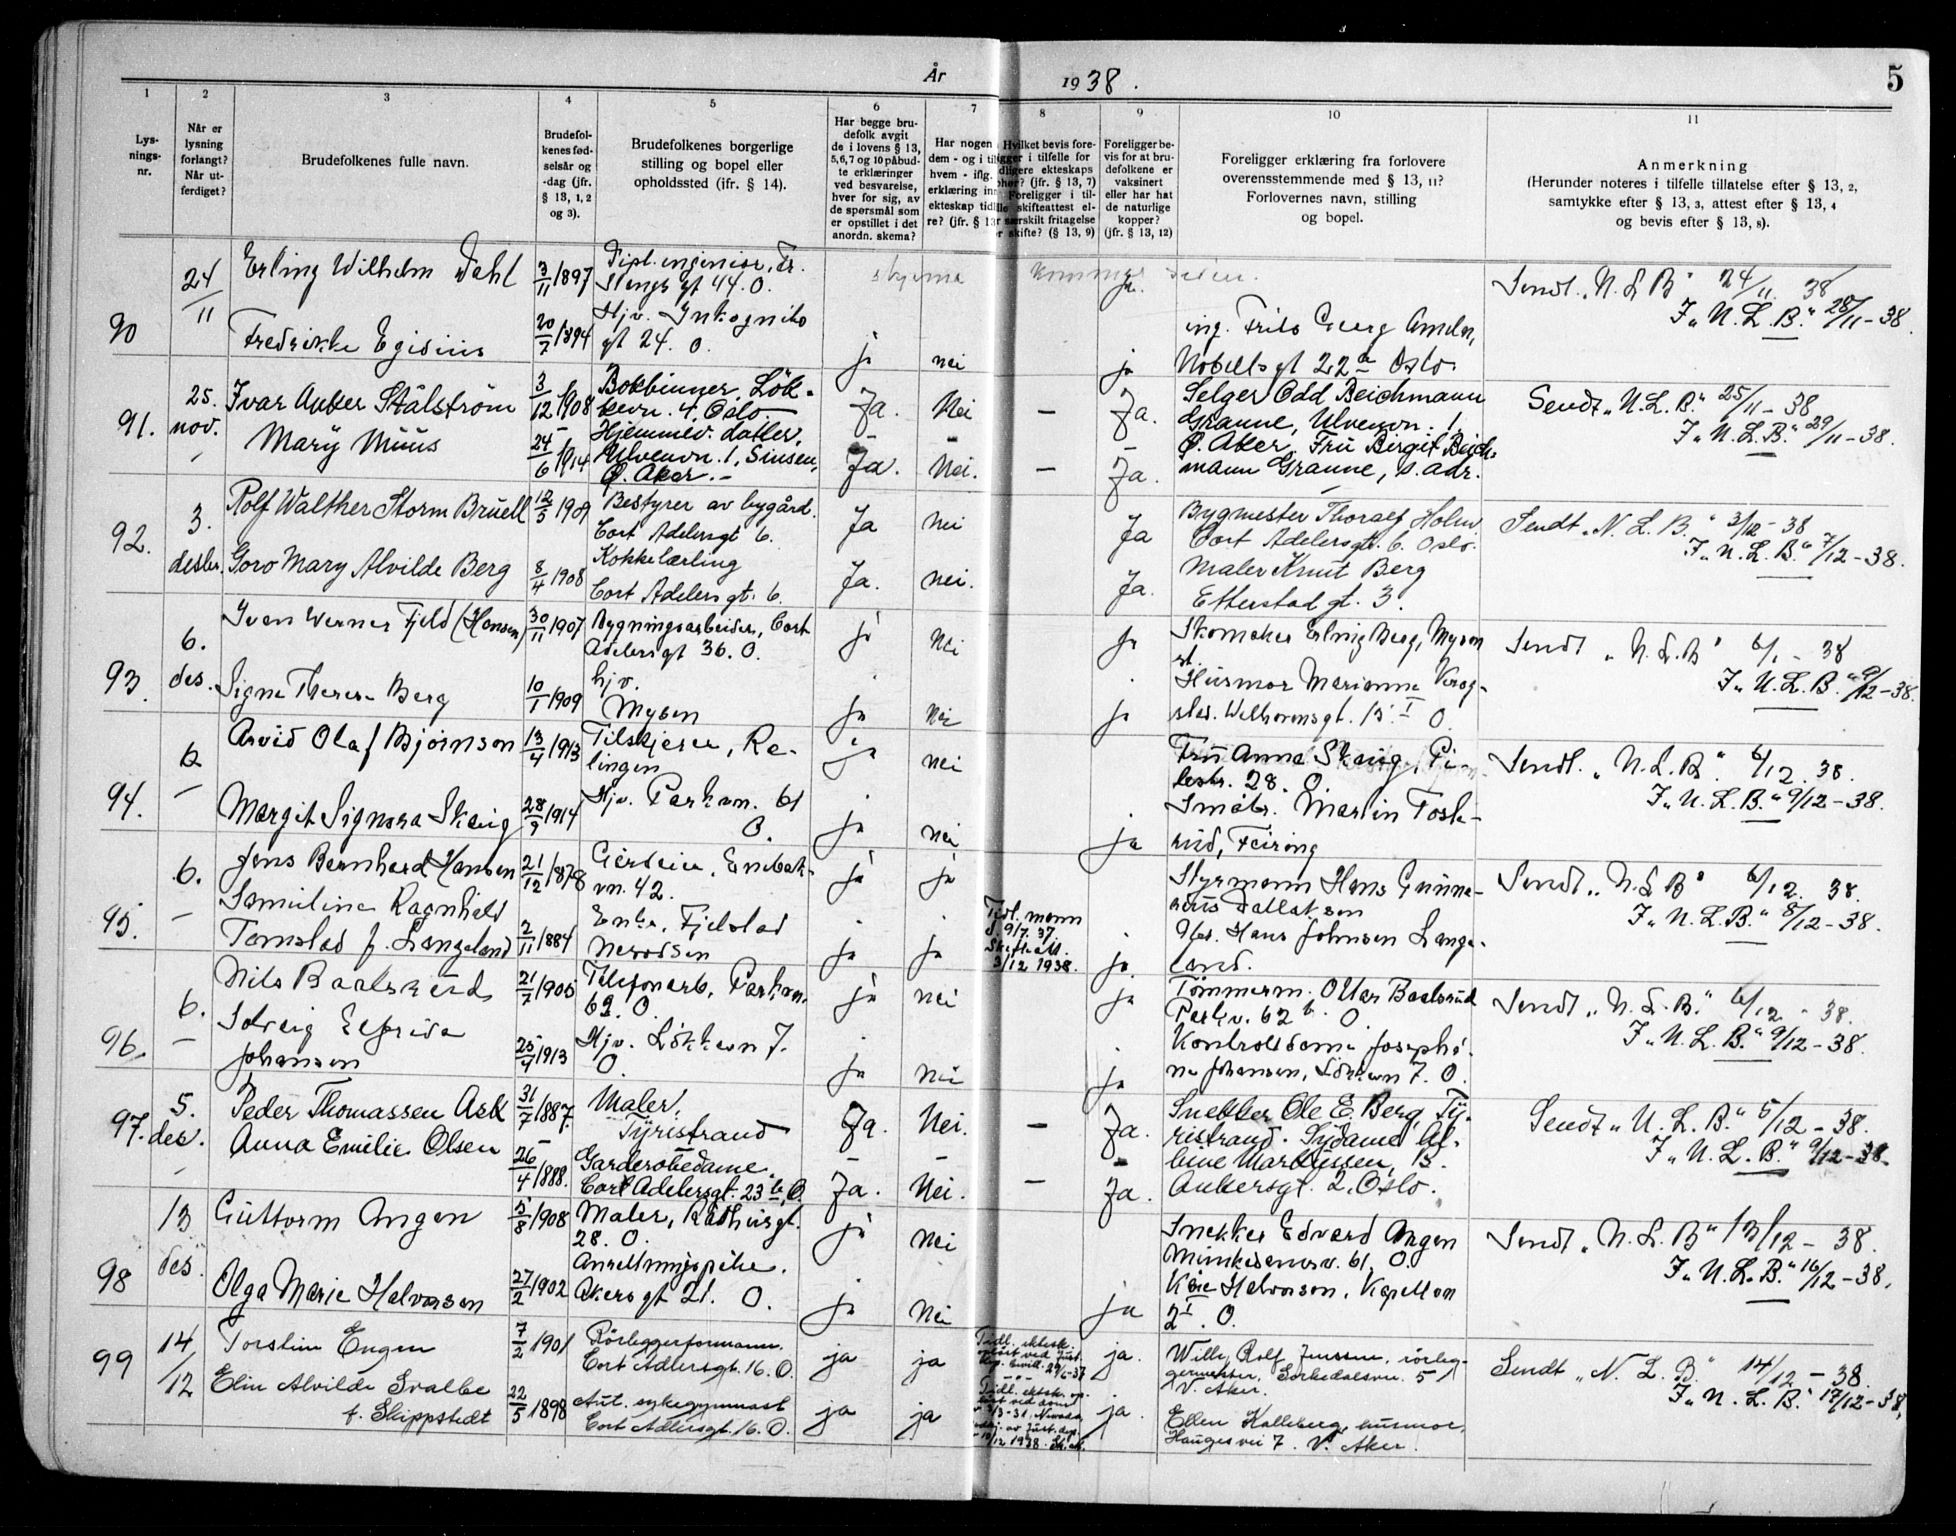 År 1938.
5
1
2
3
4
5
6
7
8
9
10
11
Lys-
nings-
nr.
Når er
lysning
forlangt?
Når ut-
ferdiget?
Brudefolkenes fulle navn.
Brudefol-
kenes fød-
selsår og
-dag (jfr.
§ 13, 1, 2
og 3).
Brudefolkenes borgerlige
stilling og bopel eller
opholdssted (ifr. § 14).
Har begge bru-
defolk avgit
de i lovens § 13,
5, 6, 7 og 10 påbud-
te erklæringer
ved besvarelse,
hver for sig, av
de spørsmål som
er opstillet i det
anordn. skema?
Har nogen
dem - og i til
hvem - iflg.
erklæring inn
ekteskap tidl
re? (jfr. § 13
Hvilket bevis fore-
ligger i tilfelle for
dligere ekteskaps
ophør? (jfr. § 13, 7)
Foreligger i til-
lle skifteattest el-
r særskilt fritagelse
or skifte? (§ 13, 9)
Foreligger be-
vis for at bru-
defolkene er
vaksinert
eller har hat
de naturlige
kopper?
(jfr. § 13, 12)
Foreligger erklæring fra forlovere
overensstemmende med § 13, 11?
Forlovernes navn, stilling
og bopel.
Anmerkning
(Herunder noteres i tilfelle tillatelse efter § 13, 2,
samtykke efter § 13, 3, attest efter § 13, 4
og bevis efter § 13, 8).
90
24/11
Erling Wilhelm Dahl
3/11 1897
Dipl. ingeniør, Fr.
Stangs gt 44. O.
skjema kommer senere.
ja
Sendt „N. L. B" 24/11 38
I „N. L. B." 28/11-38.
Fredrikke Egisius
20/7 1894
Hjv. Inkognito
gt 24. O.
ja
nei
ja
ing. Frits Georg Ameln,
Nobelsgt 22a Oslo
91.
25.
nov.
Ivar Anker Stålström
3/12 1908
Bokbinner, Lök-
kevn. 4, Oslo.
Ja.
Nei
—
Ja.
Selger Odd Beichmann
Granne, Ulvenvn. 1,
Sendt „N. L. B." 25/11-38
I „N. L. B." 29/11-38.
Mary Muus
24/6 1914
Hjemmev. datter,
Ulvenvn. 1, Sinsen,
Ø. Aker.-
Ja.
Nei.
—
Ja.
Ø. Aker, Fru Birgit Beich-
mann Granne, s. adr.
92.
3.
desbr.
Rolf Walther Storm Bruell
12/5 1909
Bestyrer av bygård.
Cort Adelersgt 6.
Ja
nei
Ja
Bygmester Thoralf Holm
Cort Adelersgt. 6. Oslo.
Sendt „N. L. B." 3/12-38
I „N. L. B." 7/12-38.
Goro Mary Alvilde Berg
8/4 1908
Kokkelærling
Cort Adelersgt. 6.
Ja.
nei.
Ja.
Maler Knut Berg
Etterstadgt. 3.
93.
6.
des.
Iven Werner Fjeld (Hansen)
30/11 1907
Bygningsarbeider, Cort
Adelersgt 36. O.
ja
nei
ja
Skomaker Erling Berg, Mysen
st.
Sendt „N. L. B" 6/1-38
I „N. L. B." 9/12-38.
Signe Therese Berg
10/1 1909
hjv.
Mysen
ja
nei
ja
Husmor Marianne Krog-
stad. Welhavensgt. 15 I O.
94.
6
Arvid Olaf Bjørnson
13/4 1913
Tilskjærer, Re-
lingen
ja
nei
Fru Anna Skaug, Pi-
lestr. 28. O.
Sendt. „N. L. B". 6/12. 38.
I „N. L. B." 9/12-38.
Margit Signora Skaug
28/9 1914
Hjv. Parkvn. 61
O.
ja
nei
ja
Småbr. Martin Tosk-
rud, Feiring
95.
6.
Jens Bernhard Hansen
21/12 1878
Gårdeier, Enebak-
vn. 42.
ja
ja
Styrmann Hans Gunna-
rius Dallaksen
Sendt „N. L. B" 6/12. 38.
I „N. L. B." 8/12-38.
Smuline Ragnhild
Tomstad f. Langeland
2/11 1884
Enke, Fjelstad
Nesodden
ja
ja
Tidl. mann
d. 9/7. 37.
Skifteatt.
3/12 1938.
ja
Gbr. Hans Johnsen Lange-
land.
96.
6.
Nils Baalsrud
21/7 1905
Telefonarb., Parkvn.
62. O.
ja
nei
ja
Tømmerm. Ottar Baalsrud
Parkv. 62 b. O.
Sendt „N. L. B." 6/12-38.
I „N. L. B." 9/12-38.
Solveig Elfrida
Johansen
25/4 1913
Hjv. Lökkevn 7.
O.
ja
nei
ja
Kontroldame Josephi-
ne Johansen, Lökkevn 7. O.
97.
5.
des.
Peder Thomassen Ask
31/7 1887.
Maler,
Tyristrand
Ja.
Nei.
—
Ja.
Snekker Ole E. Berg, Ty-
ristrand. Sydame Al-
Sendt „N. L. B." 5/12-38.
I „N. L. B." 9/12-38.
Anna Emilie Olsen
26/4 1888.
Garderobedame
Cort Adelersgt. 23 b, O.
Ja.
Nei.
—
Ja.
bine Markussen, B.
Ankersgt. 2, Oslo.
98
13
des.
Guttorm Angen
5/8 1908
Maler, Rådhusgt.
28. O.
ja
nei
Snekker Edvard Angen
Munkedamsv. 61, O.
Sendt „N. L. B" 13/12-38.
I „N. L. B." 16/12-38.
Olga Marie Halvorsen
27/2 1902
Anretningspike.
Akersgt 21. O.
ja
nei
ja
Kåre Halvorsen, Kapellvn
2 I. O.
99
14/12
Torstein Engen
7/2 1901
Rörleggerformann.
Cort Adlersgt. 16. O.
ja
ja
Tidl. ektesk.
opløst ved Just.
dep. bevill. 29/6-37
ja.
Willy Rolf Jenssen, rörleg-
germester, Sørkedalsvn. 5
V. Aker.
Sendt „N. L. B." 14/12-38.
I „N. L. B." 17/12-38.
Elin Alvilde Svalbe
f. Skippstedt
22/5 1898
Aut. sykegymnast
Cort Adlersgt. 16. O.
ja
ja
Tidl. ektesk. op-
løst ved dom
3/3-31, Nevada,
av Just. dep.
10/12 1938. Sk.att.
ja.
Ellen Kalleberg, husmor,
Haugesvei 7. V. Aker.